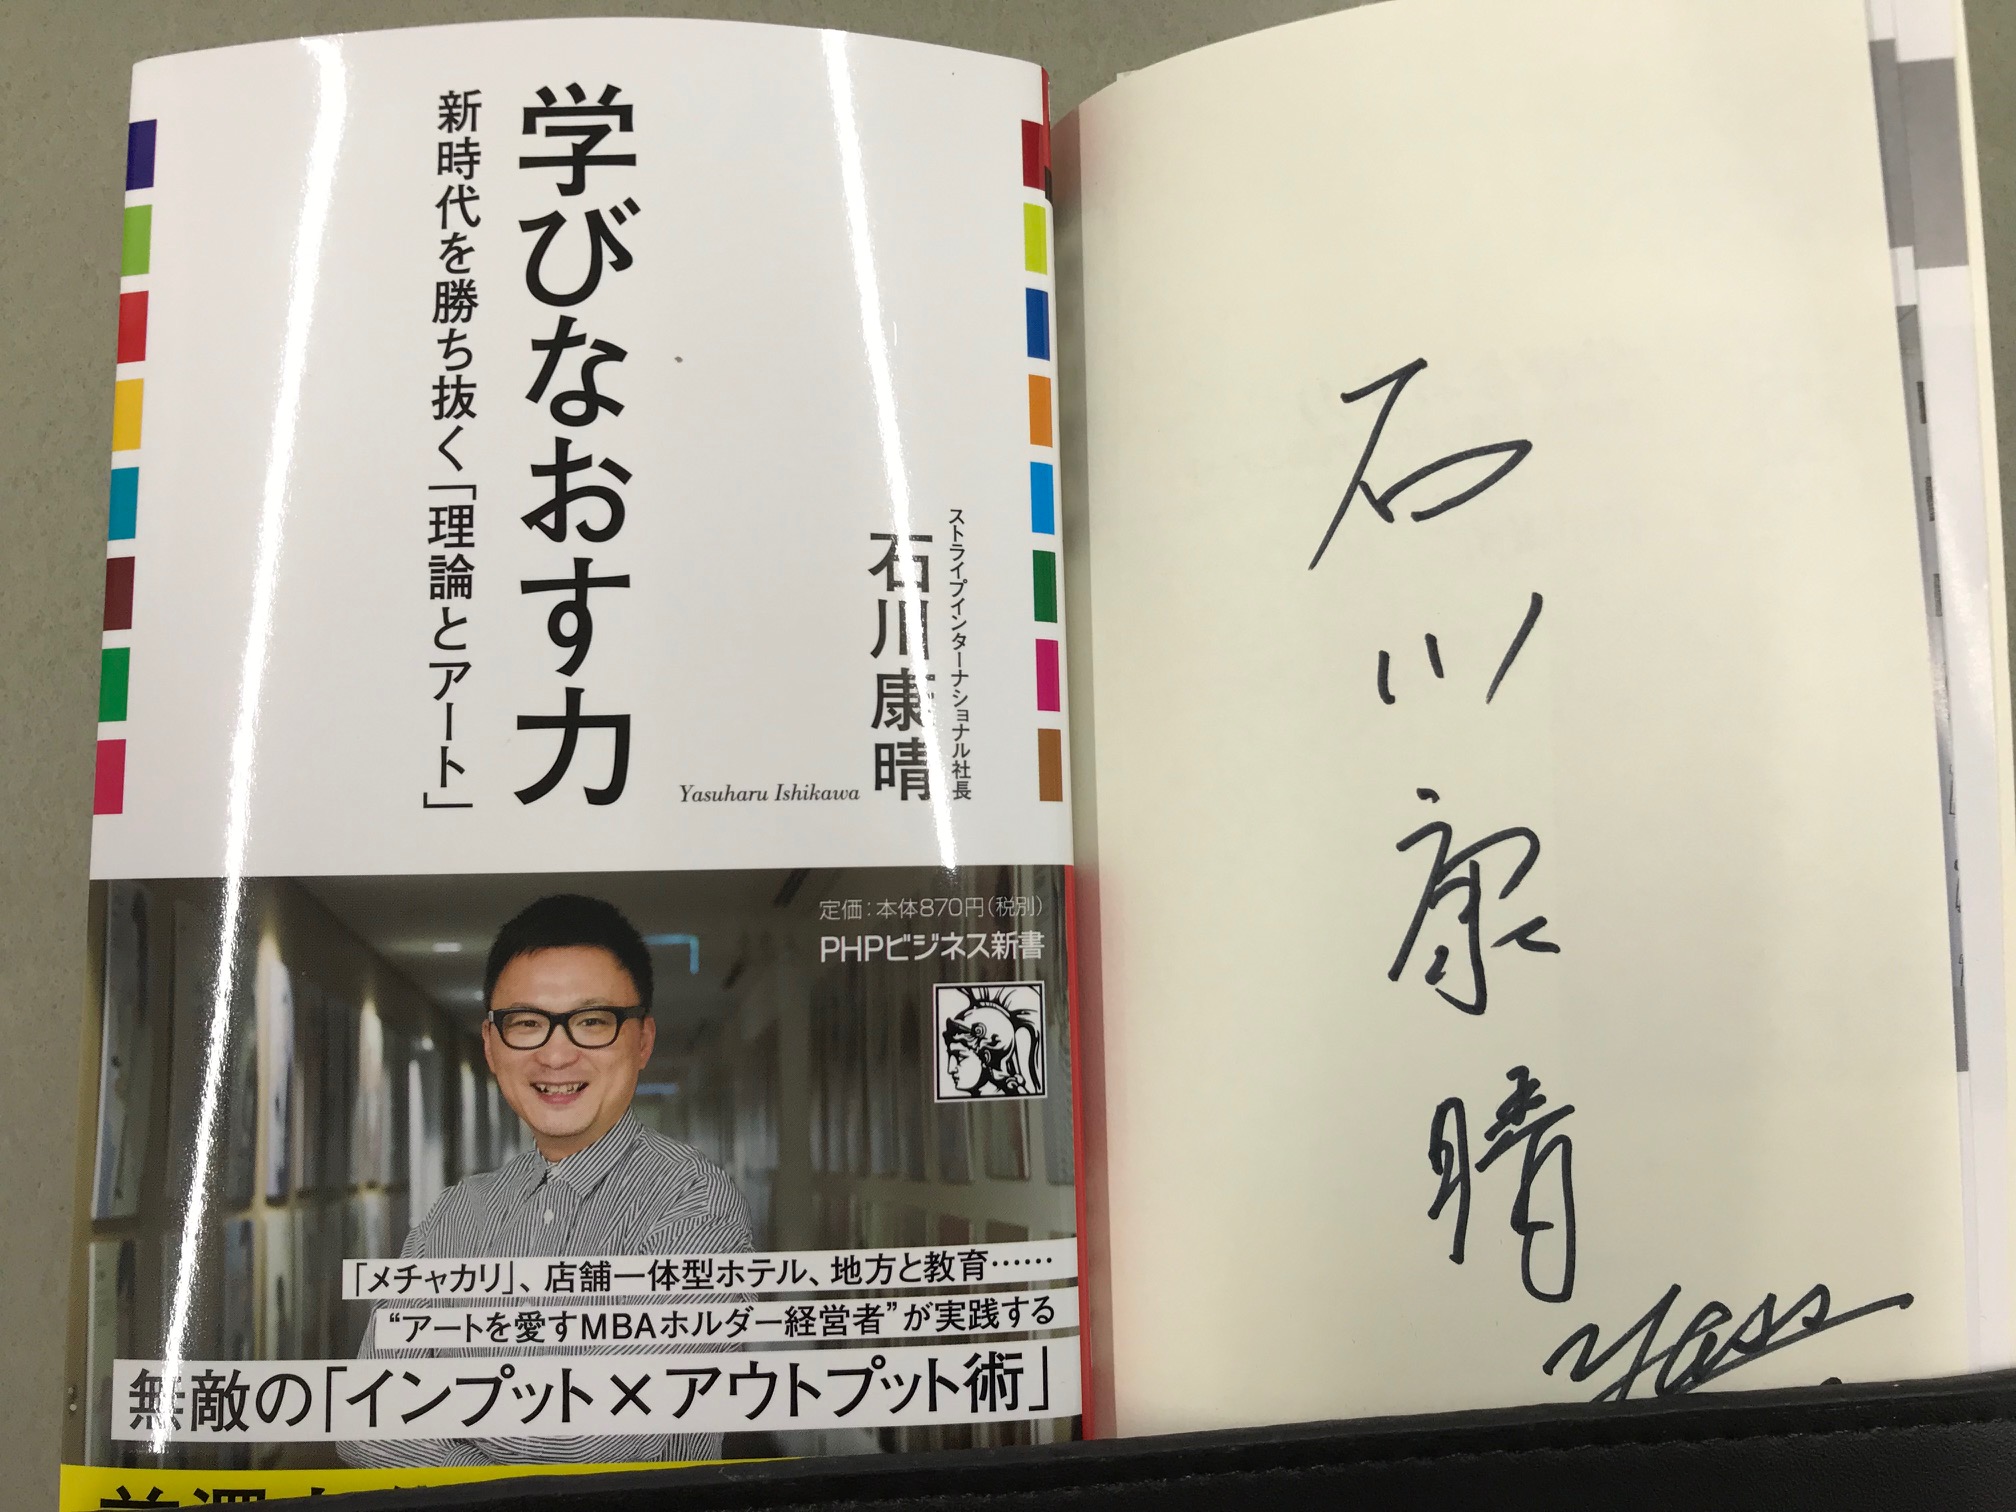 学びなおす力
新時代を勝ち抜く「理論とアート」
ストライプインターナショナル社長
石川康晴
Yasuharu Ishikawa
定価：本体870円（税別）
PHPビジネス新書
「メチャカリ」、店舗一体型ホテル、地方と教育……
“アートを愛すMBAホルダー経営者”が実践する
無敵の「インプット×アウトプット術」
石川康晴